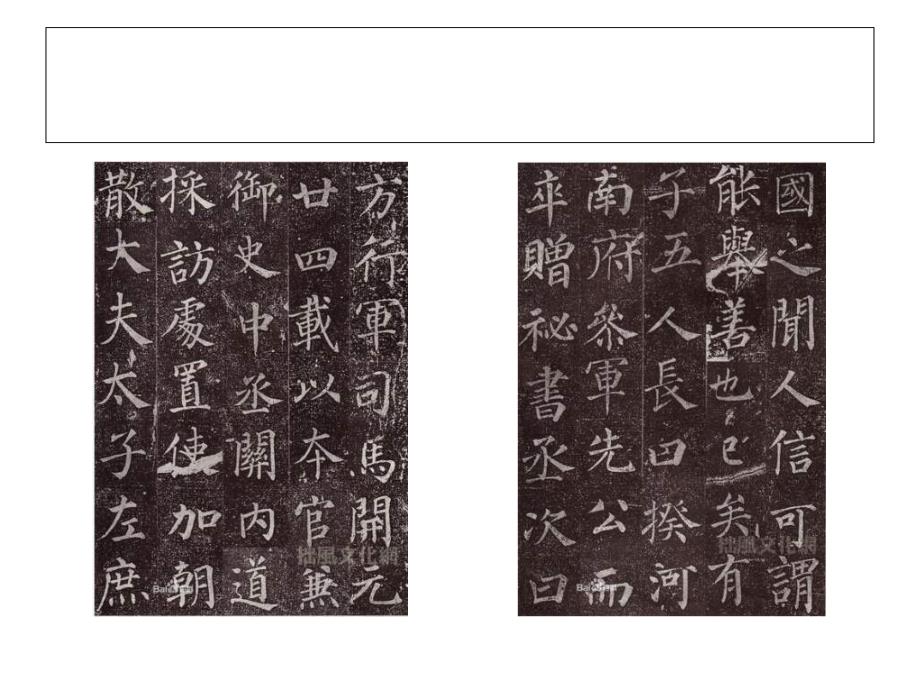 方行軍司馬開元
廿四載以本官兼
御史中丞關內道
採訪處置使加朝
散大夫太子左庶
拙風文化網
國之聞人信可謂
能舉善也已矣有
子五人長曰揆河
南府參軍先公而
卒贈祕書丞次曰
拙風文化網